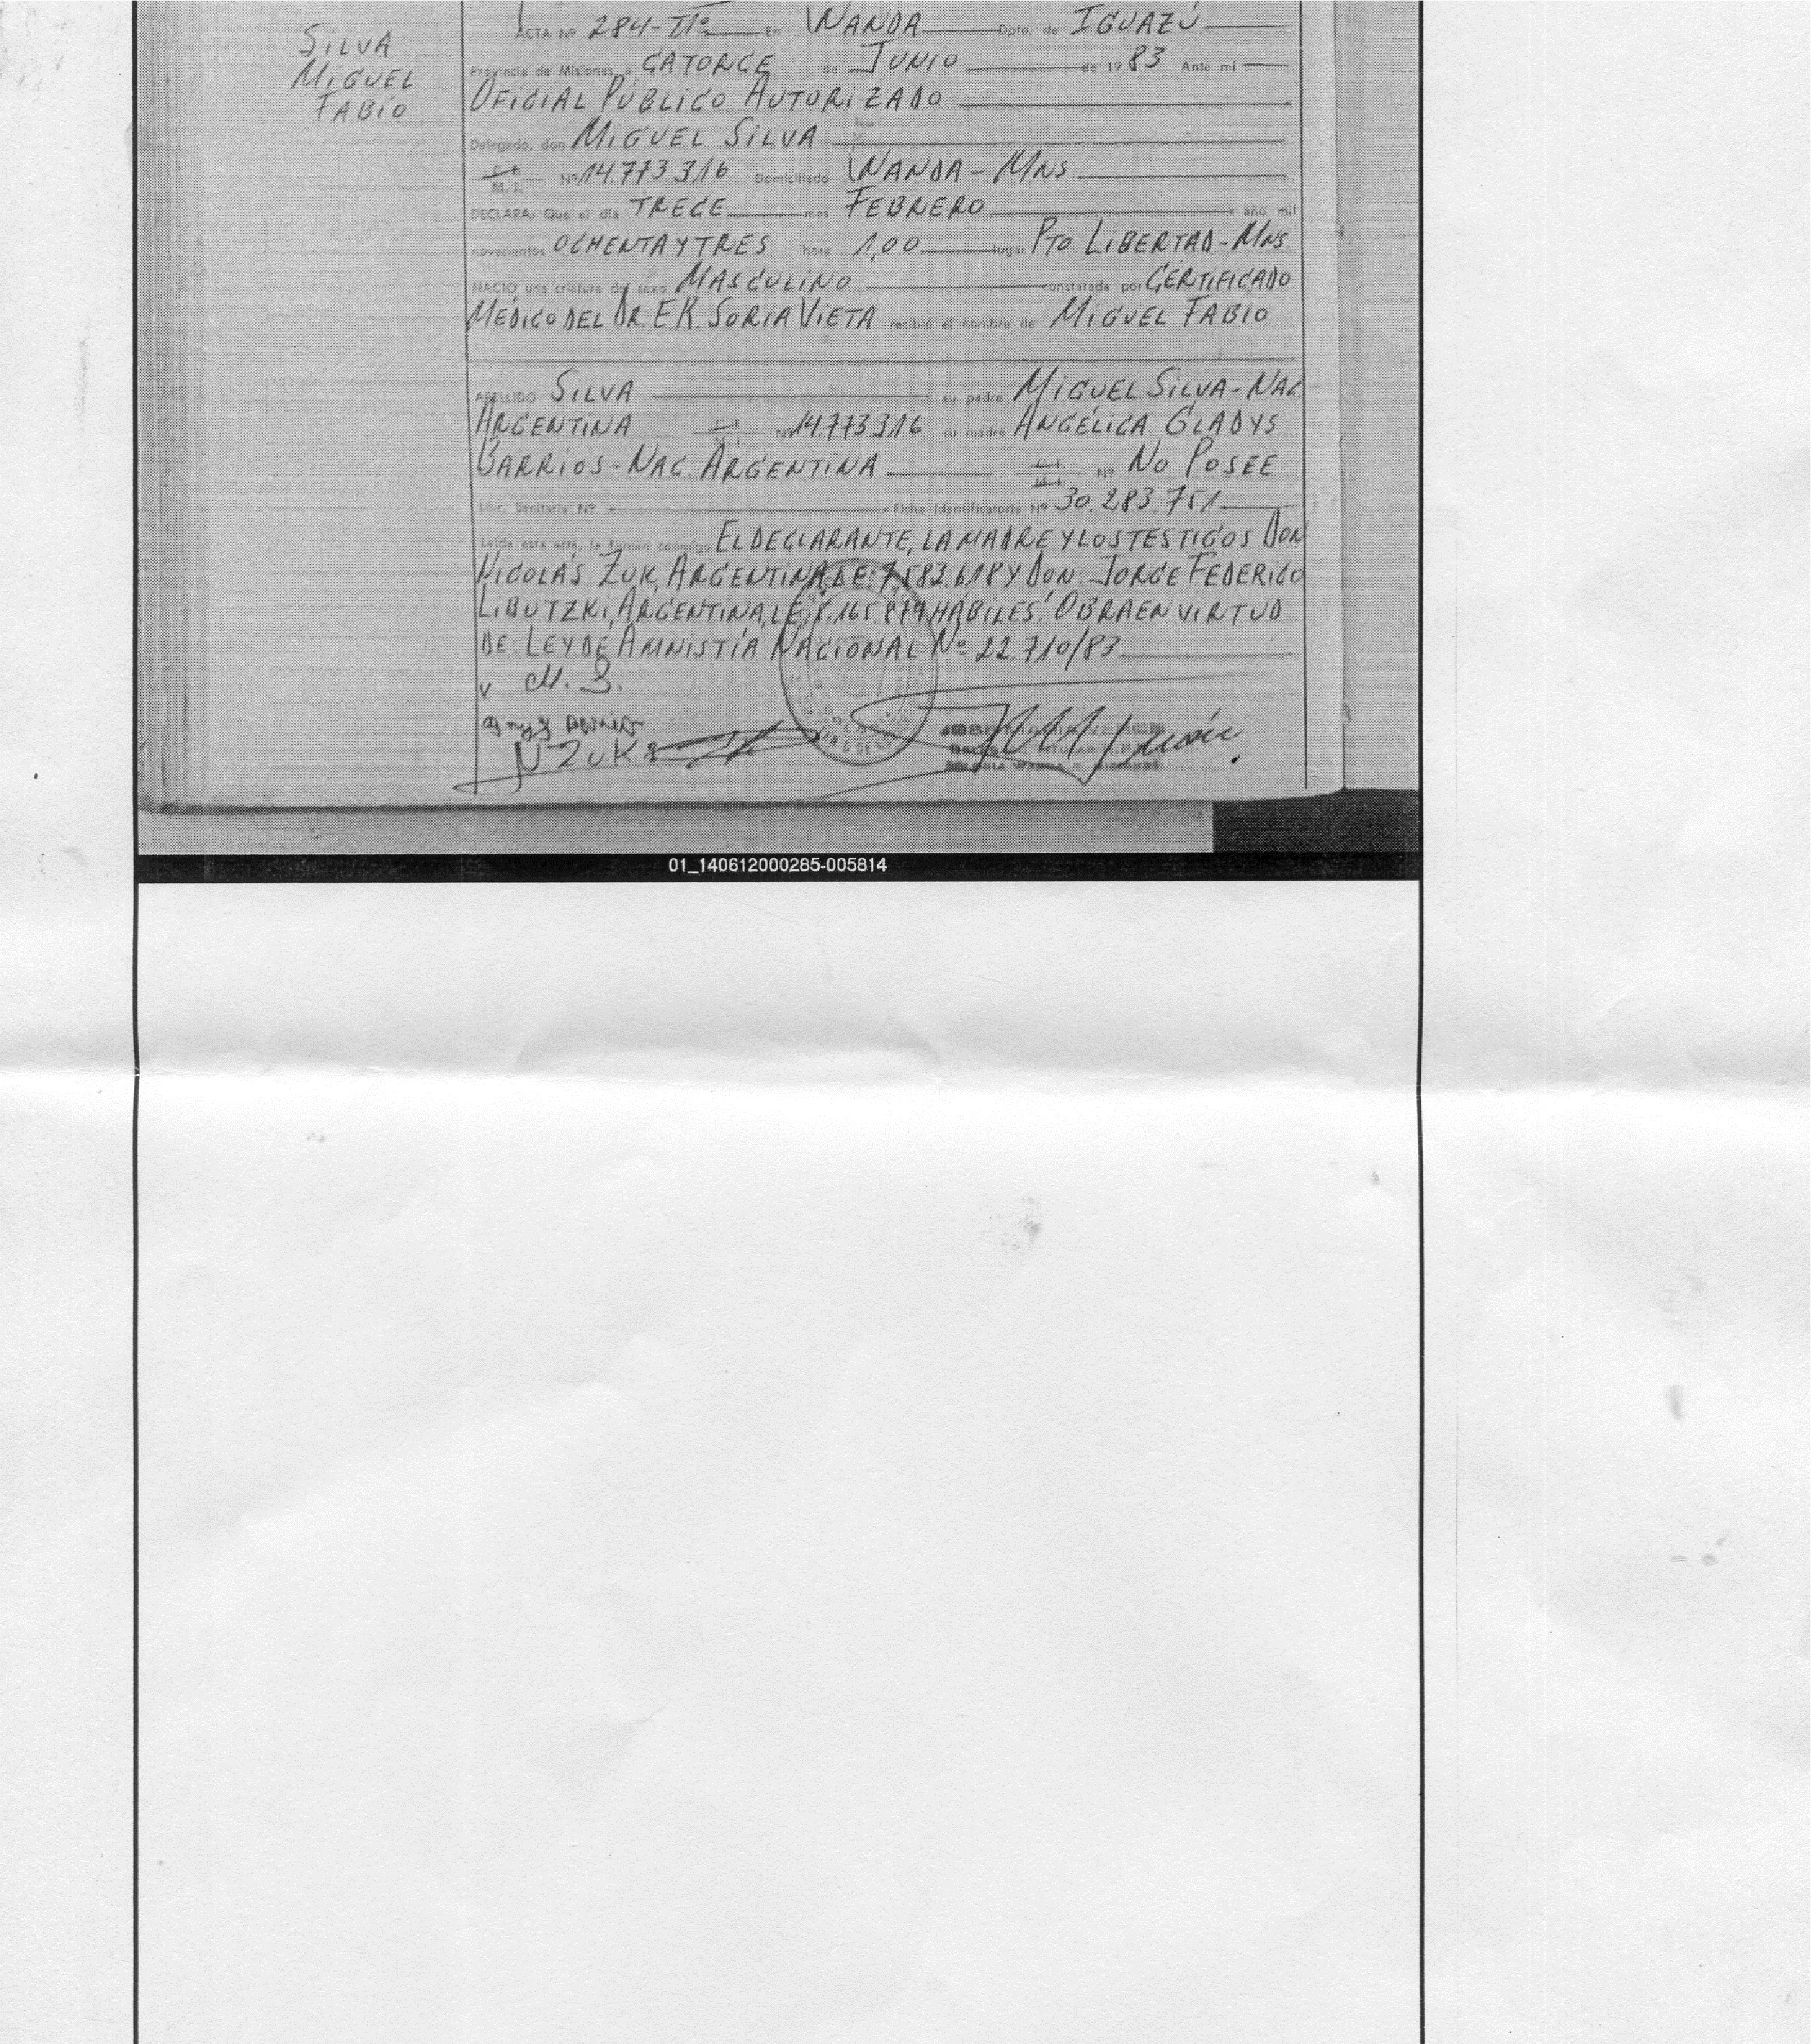 SILVA
MIGUEL
FABIO
ACTA Nº 284-IIº En WANDA Dpto. de IGUAZÚ
Provincia de Misiones a CATORCE de JUNIO de 1983 Ante mí
OFICIAL PÚBLICO AUTORIZADO
Delegado, don MIGUEL SILVA
M. I. Nº 14.773.316 Domiciliado WANDA - MNS
DECLARA: Que el día TRECE mes FEBRERO año mil
novecientos OCHENTA Y TRES hora 1,00 lugar PTO LIBERTAD - MNS
NACIO una criatura del sexo MASCULINO constatada por CERTIFICADO
MÉDICO DEL DR. E.K. SORIA VIETA recibió el nombre de MIGUEL FABIO
APELLIDO SILVA su padre MIGUEL SILVA - NAC.
ARGENTINA Nº 14.773.316 su madre ANGÉLICA GLADYS
BARRIOS - NAC. ARGENTINA Nº NO POSEE
Lib. Sanitaria Nº Ficha Identificatoria Nº 30.283.751
Leída esta acta, la firman conmigo EL DECLARANTE, LA MADRE Y LOS TESTIGOS DON
NICOLÁS ZUK, ARGENTINA, L.E. 7.583.618 Y DON JORGE FEDERICO
LIBUTZKI, ARGENTINA, L.E. HÁBILES. OBRA EN VIRTUD
DE LEY DE AMNISTÍA NACIONAL Nº 22.710/83
M. S.
N ZUK
01_140612000285-005814